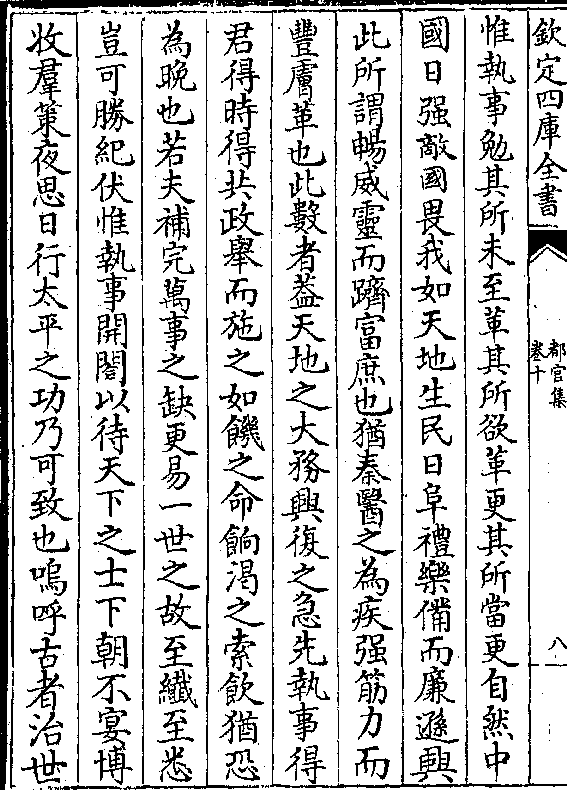 欽定四庫全書
都官集
卷十
八
惟執事勉其所未至革其所欲革更其所當更自然中
國日强敵國畏我如天地生民日阜禮樂備而廉遜興
此所謂暢威靈而躋富庶也猶秦醫之為疾强筋力而
豐膚革也此數者葢天地之大務興復之急先執事得
君得時得共政舉而施之如饑之命餉渴之索飲猶恐
為晚也若夫補完萬事之缺更易一世之故至纎至悉
豈可勝紀伏惟執事開閤以待天下之士下朝不宴博
收羣策夜思日行太平之功乃可致也嗚呼古者治世